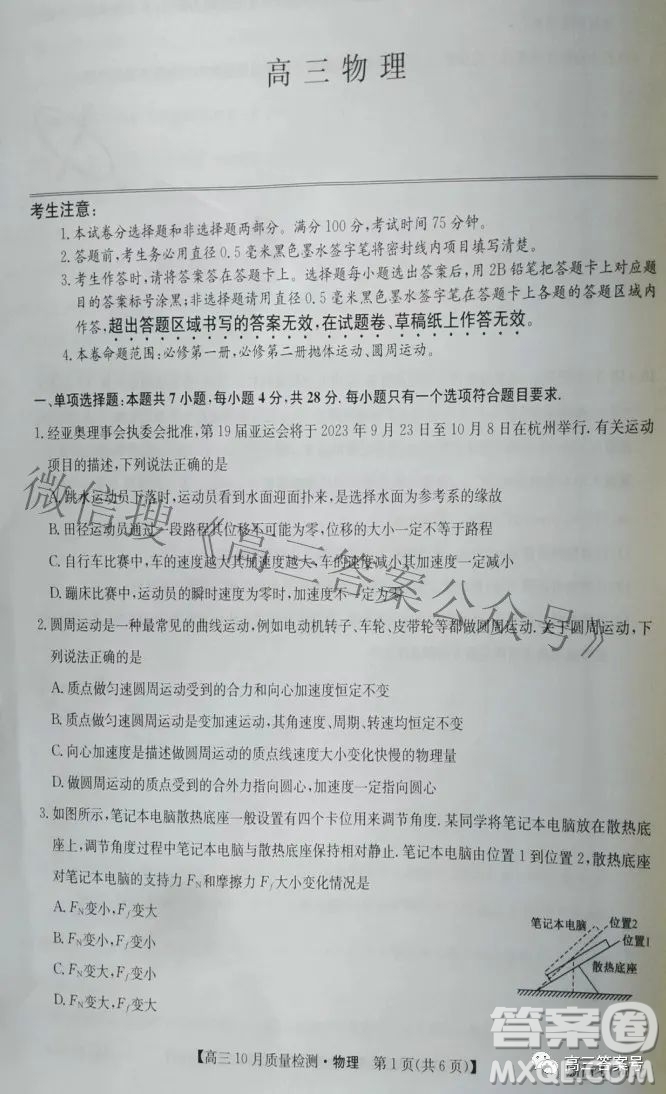 高三物理
考生注意:
1.本试卷分选择题和非选择题两部分。满分100分,考试时间75分钟。
2.答题前,考生务必用直径0.5毫米黑色墨水签字笔将密封线内项目填写清楚。
3.考生作答时,请将答案答在答题卡上。选择题每小题选出答案后,用2B铅笔把答题卡上对应题
目的答案标号涂黑;非选择题请用直径0.5毫米黑色墨水签字笔在答题卡上各题的答题区域内
作答,超出答题区域书写的答案无效,在试题卷、草稿纸上作答无效。
4.本卷命题范围:必修第一册,必修第二册抛体运动、圆周运动。
一、单项选择题:本题共7小题,每小题4分,共28分.每小题只有一个选项符合题目要求.
1.经亚奥理事会执委会批准,第19届亚运会将于2023年9月23日至10月8日在杭州举行.有关运动
项目的描述,下列说法正确的是
A.跳水运动员下落时,运动员看到水面迎面扑来,是选择水面为参考系的缘故
B.田径运动员通过一段路程其位移不可能为零,位移的大小一定不等于路程
C.自行车比赛中,车的速度越大其加速度越大,车的速度减小其加速度一定减小
D.蹦床比赛中,运动员的瞬时速度为零时,加速度不一定为零
2.圆周运动是一种最常见的曲线运动,例如电动机转子、车轮、皮带轮等都做圆周运动.关于圆周运动,下
列说法正确的是
A.质点做匀速圆周运动受到的合力和向心加速度恒定不变
B.质点做匀速圆周运动是变加速运动,其角速度、周期、转速均恒定不变
C.向心加速度是描述做圆周运动的质点线速度大小变化快慢的物理量
D.做圆周运动的质点受到的合外力指向圆心,加速度一定不指向圆心
3.如图所示,笔记本电脑散热底座一般设置有四个卡位用来调节角度.某同学将笔记本电脑放在散热底
座上,调节角度过程中笔记本电脑与散热底座保持相对静止.笔记本电脑由位置1到位置2,散热底座
对笔记本电脑的支持力FN和摩擦力Ff大小变化情况是
A.FN变小,Ff变大
B.FN变小,Ff变小
C.FN变大,Ff变小
D.FN变大,Ff变大
笔记本电脑
位置2
位置1
散热底座
【高三10月质量检测·物理 第1页(共6页)】
微信搜《高三答案公众号》
答案圈
MXQE.COM
高三答案号